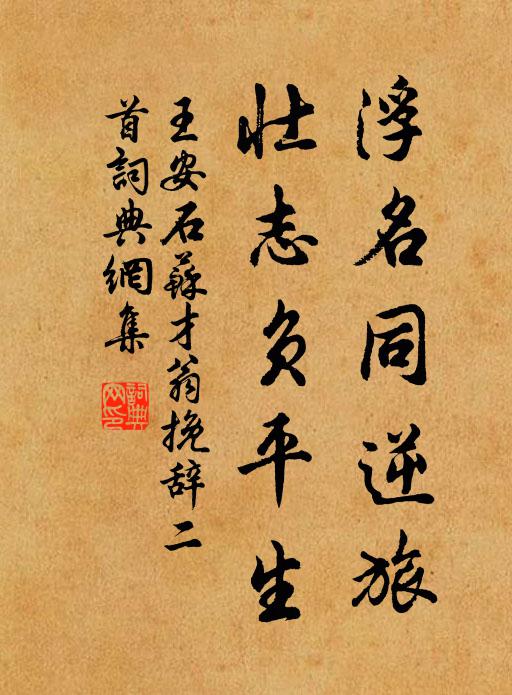 浮名同逆旅
壮志负平生
王安石蘇才翁挽辞二
首詞典網集
詞典
网印